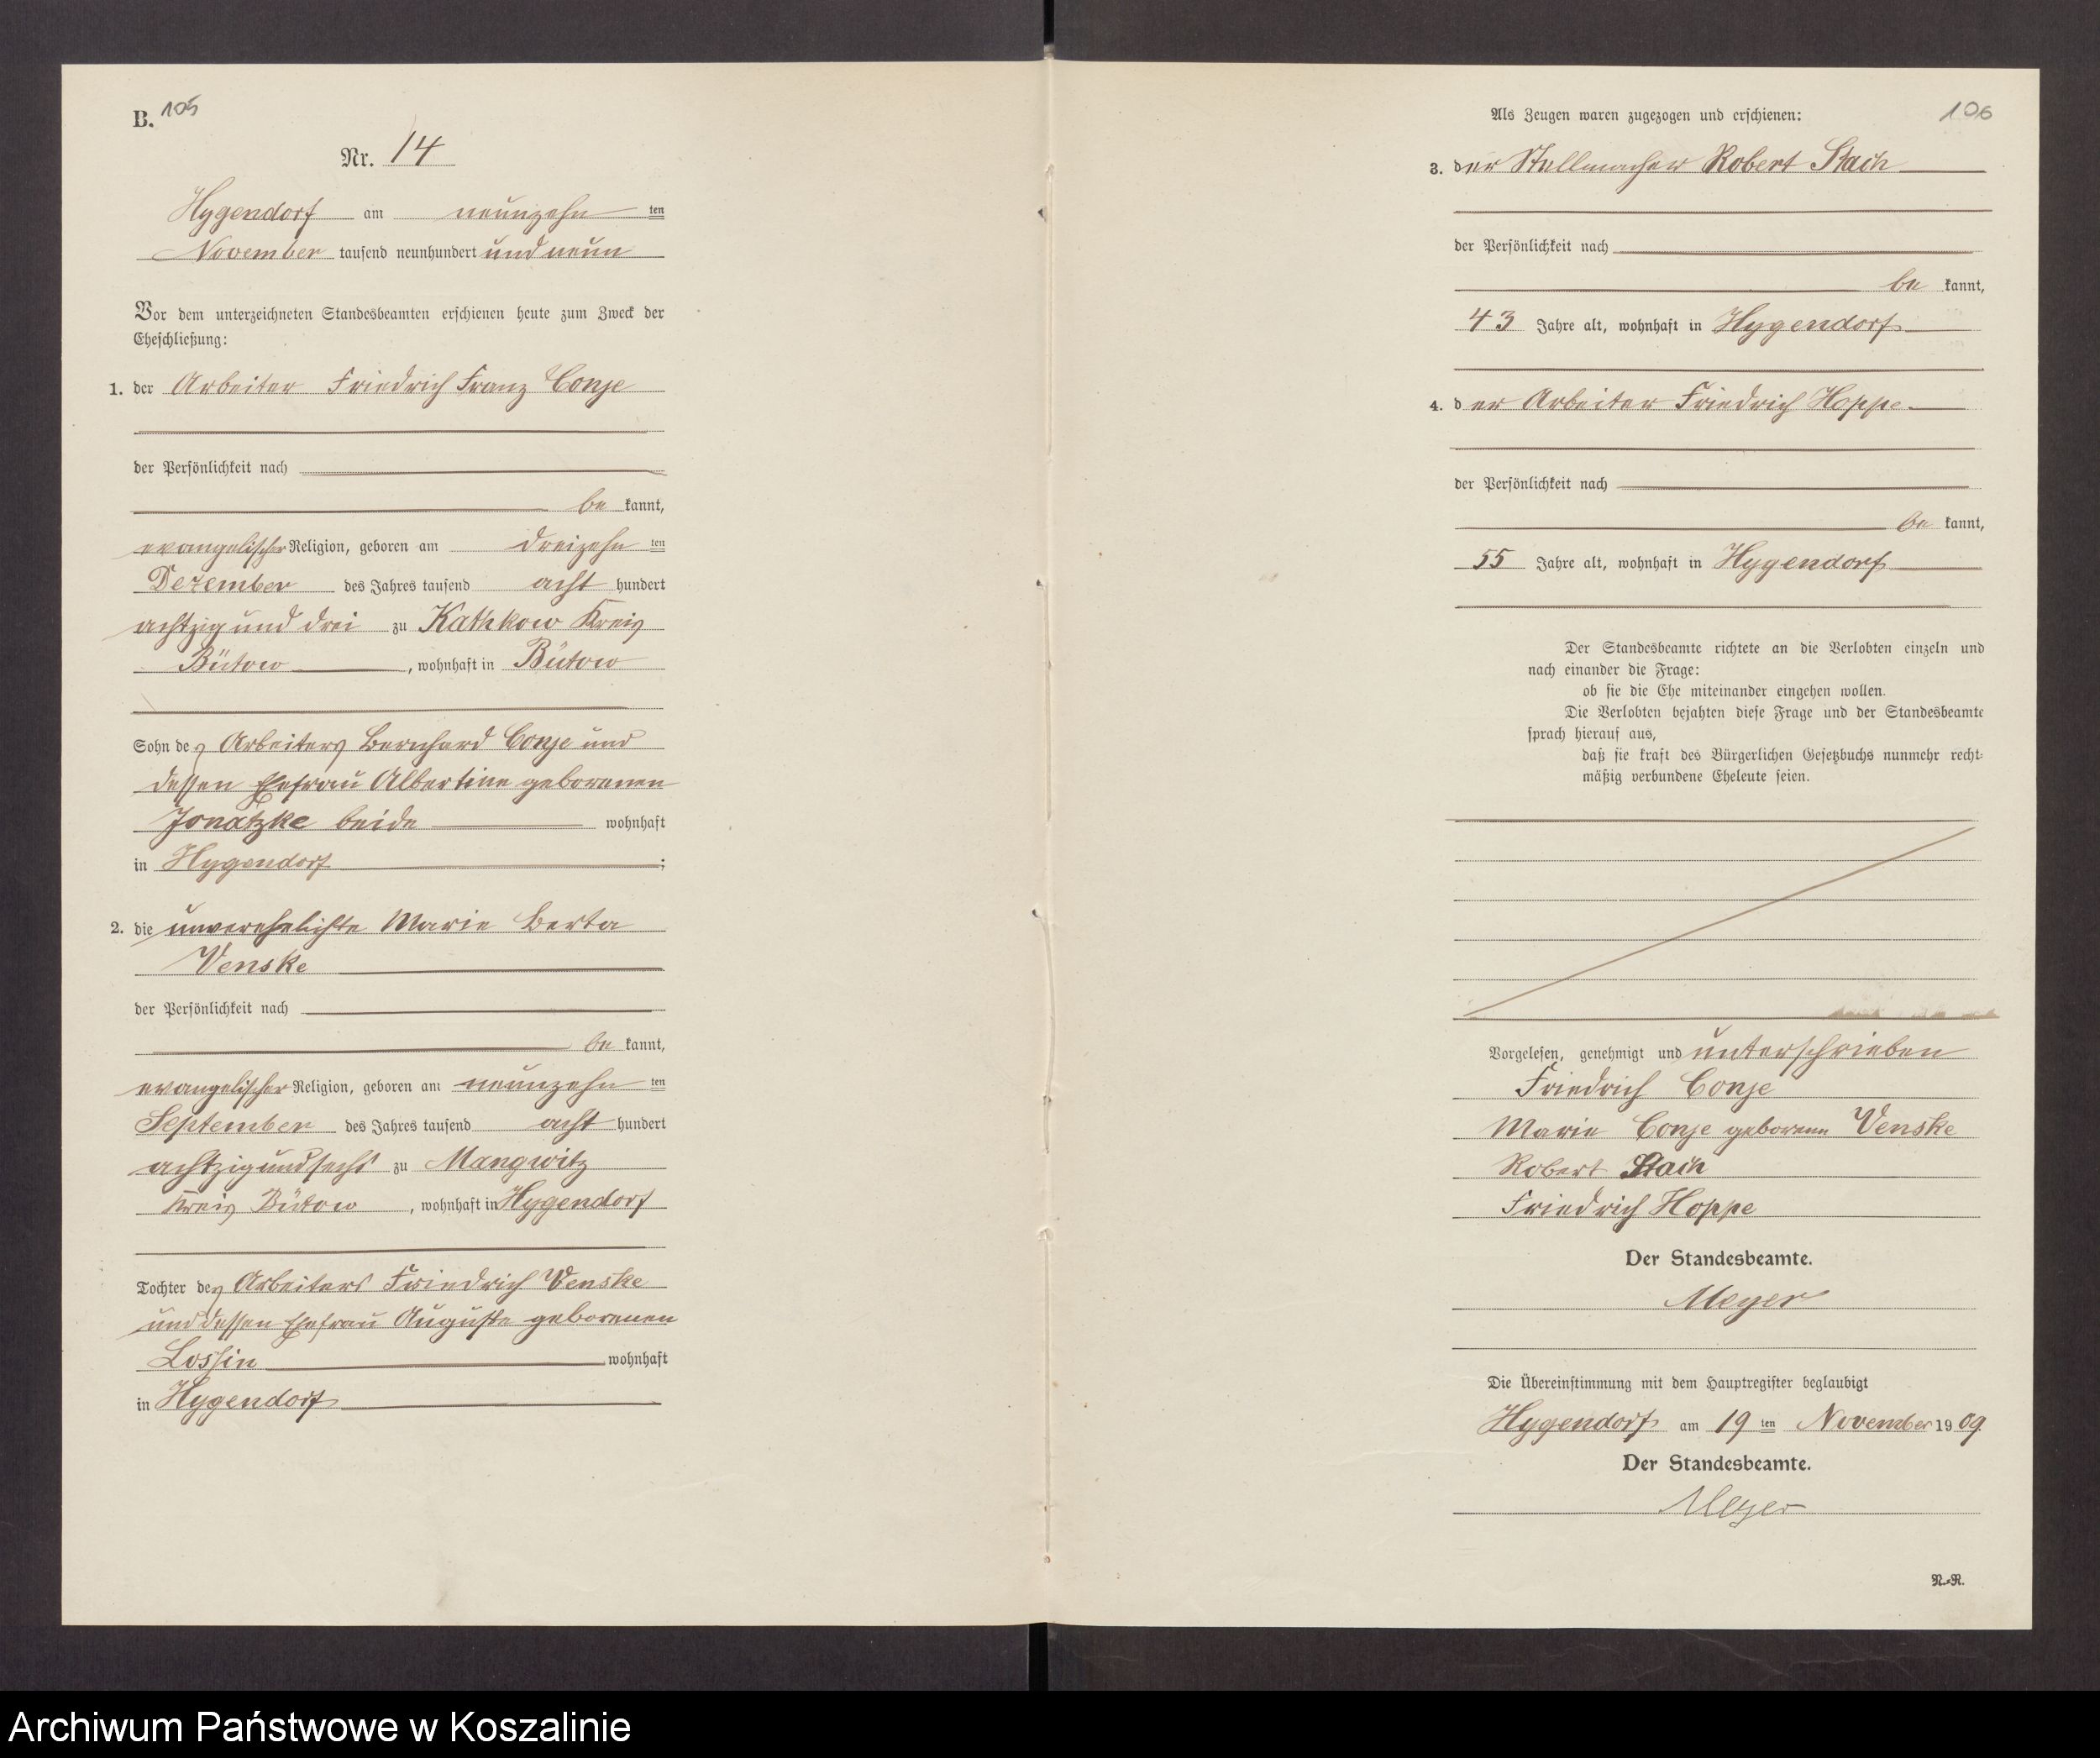 B. 105
Nr. 14
Hygendorf am neunzehn ten
November tausend neunhundert und neun
Vor dem unterzeichneten Standesbeamten erschienen heute zum Zweck der
Eheschließung:
1. der Arbeiter Friedrich Franz Conje
der Persönlichkeit nach
be kannt,
evangelischer Religion, geboren am dreizehn ten
Dezember des Jahres tausend acht hundert
achtzig und drei zu Kathkow Kreis
Bütow, wohnhaft in Bütow
Sohn des Arbeiters Bernhard Conje und
dessen Ehefrau Albertine geborenen
Jonatzke beide wohnhaft
in Hygendorf;
2. die unverehelichte Marie Berta
Venske
der Persönlichkeit nach
be kannt,
evangelischer Religion, geboren am neunzehn ten
September des Jahres tausend acht hundert
achtzig und sechs zu Mangwitz
Kreis Bütow, wohnhaft in Hygendorf
Tochter des Arbeiters Friedrich Venske
und dessen Ehefrau Auguste geborenen
Lossin wohnhaft
in Hygendorf
Als Zeugen waren zugezogen und erschienen: 106
3. der Stellmacher Robert Stach
der Persönlichkeit nach
be kannt,
43 Jahre alt, wohnhaft in Hygendorf
4. der Arbeiter Friedrich Hoppe
der Persönlichkeit nach
be kannt,
55 Jahre alt, wohnhaft in Hygendorf
Der Standesbeamte richtete an die Verlobten einzeln und
nach einander die Frage:
ob sie die Ehe miteinander eingehen wollen.
Die Verlobten bejahten diese Frage und der Standesbeamte
sprach hierauf aus,
daß sie kraft des Bürgerlichen Gesetzbuchs nunmehr recht-
mäßig verbundene Eheleute seien.
Vorgelesen, genehmigt und unterschrieben
Friedrich Conje
Marie Conje geborene Venske
Robert Stach
Friedrich Hoppe
Der Standesbeamte.
Meyer
Die Übereinstimmung mit dem Hauptregister beglaubigt
Hygendorf am 19 ten November 1909.
Der Standesbeamte.
Meyer
N.-R.
Archiwum Państwowe w Koszalinie